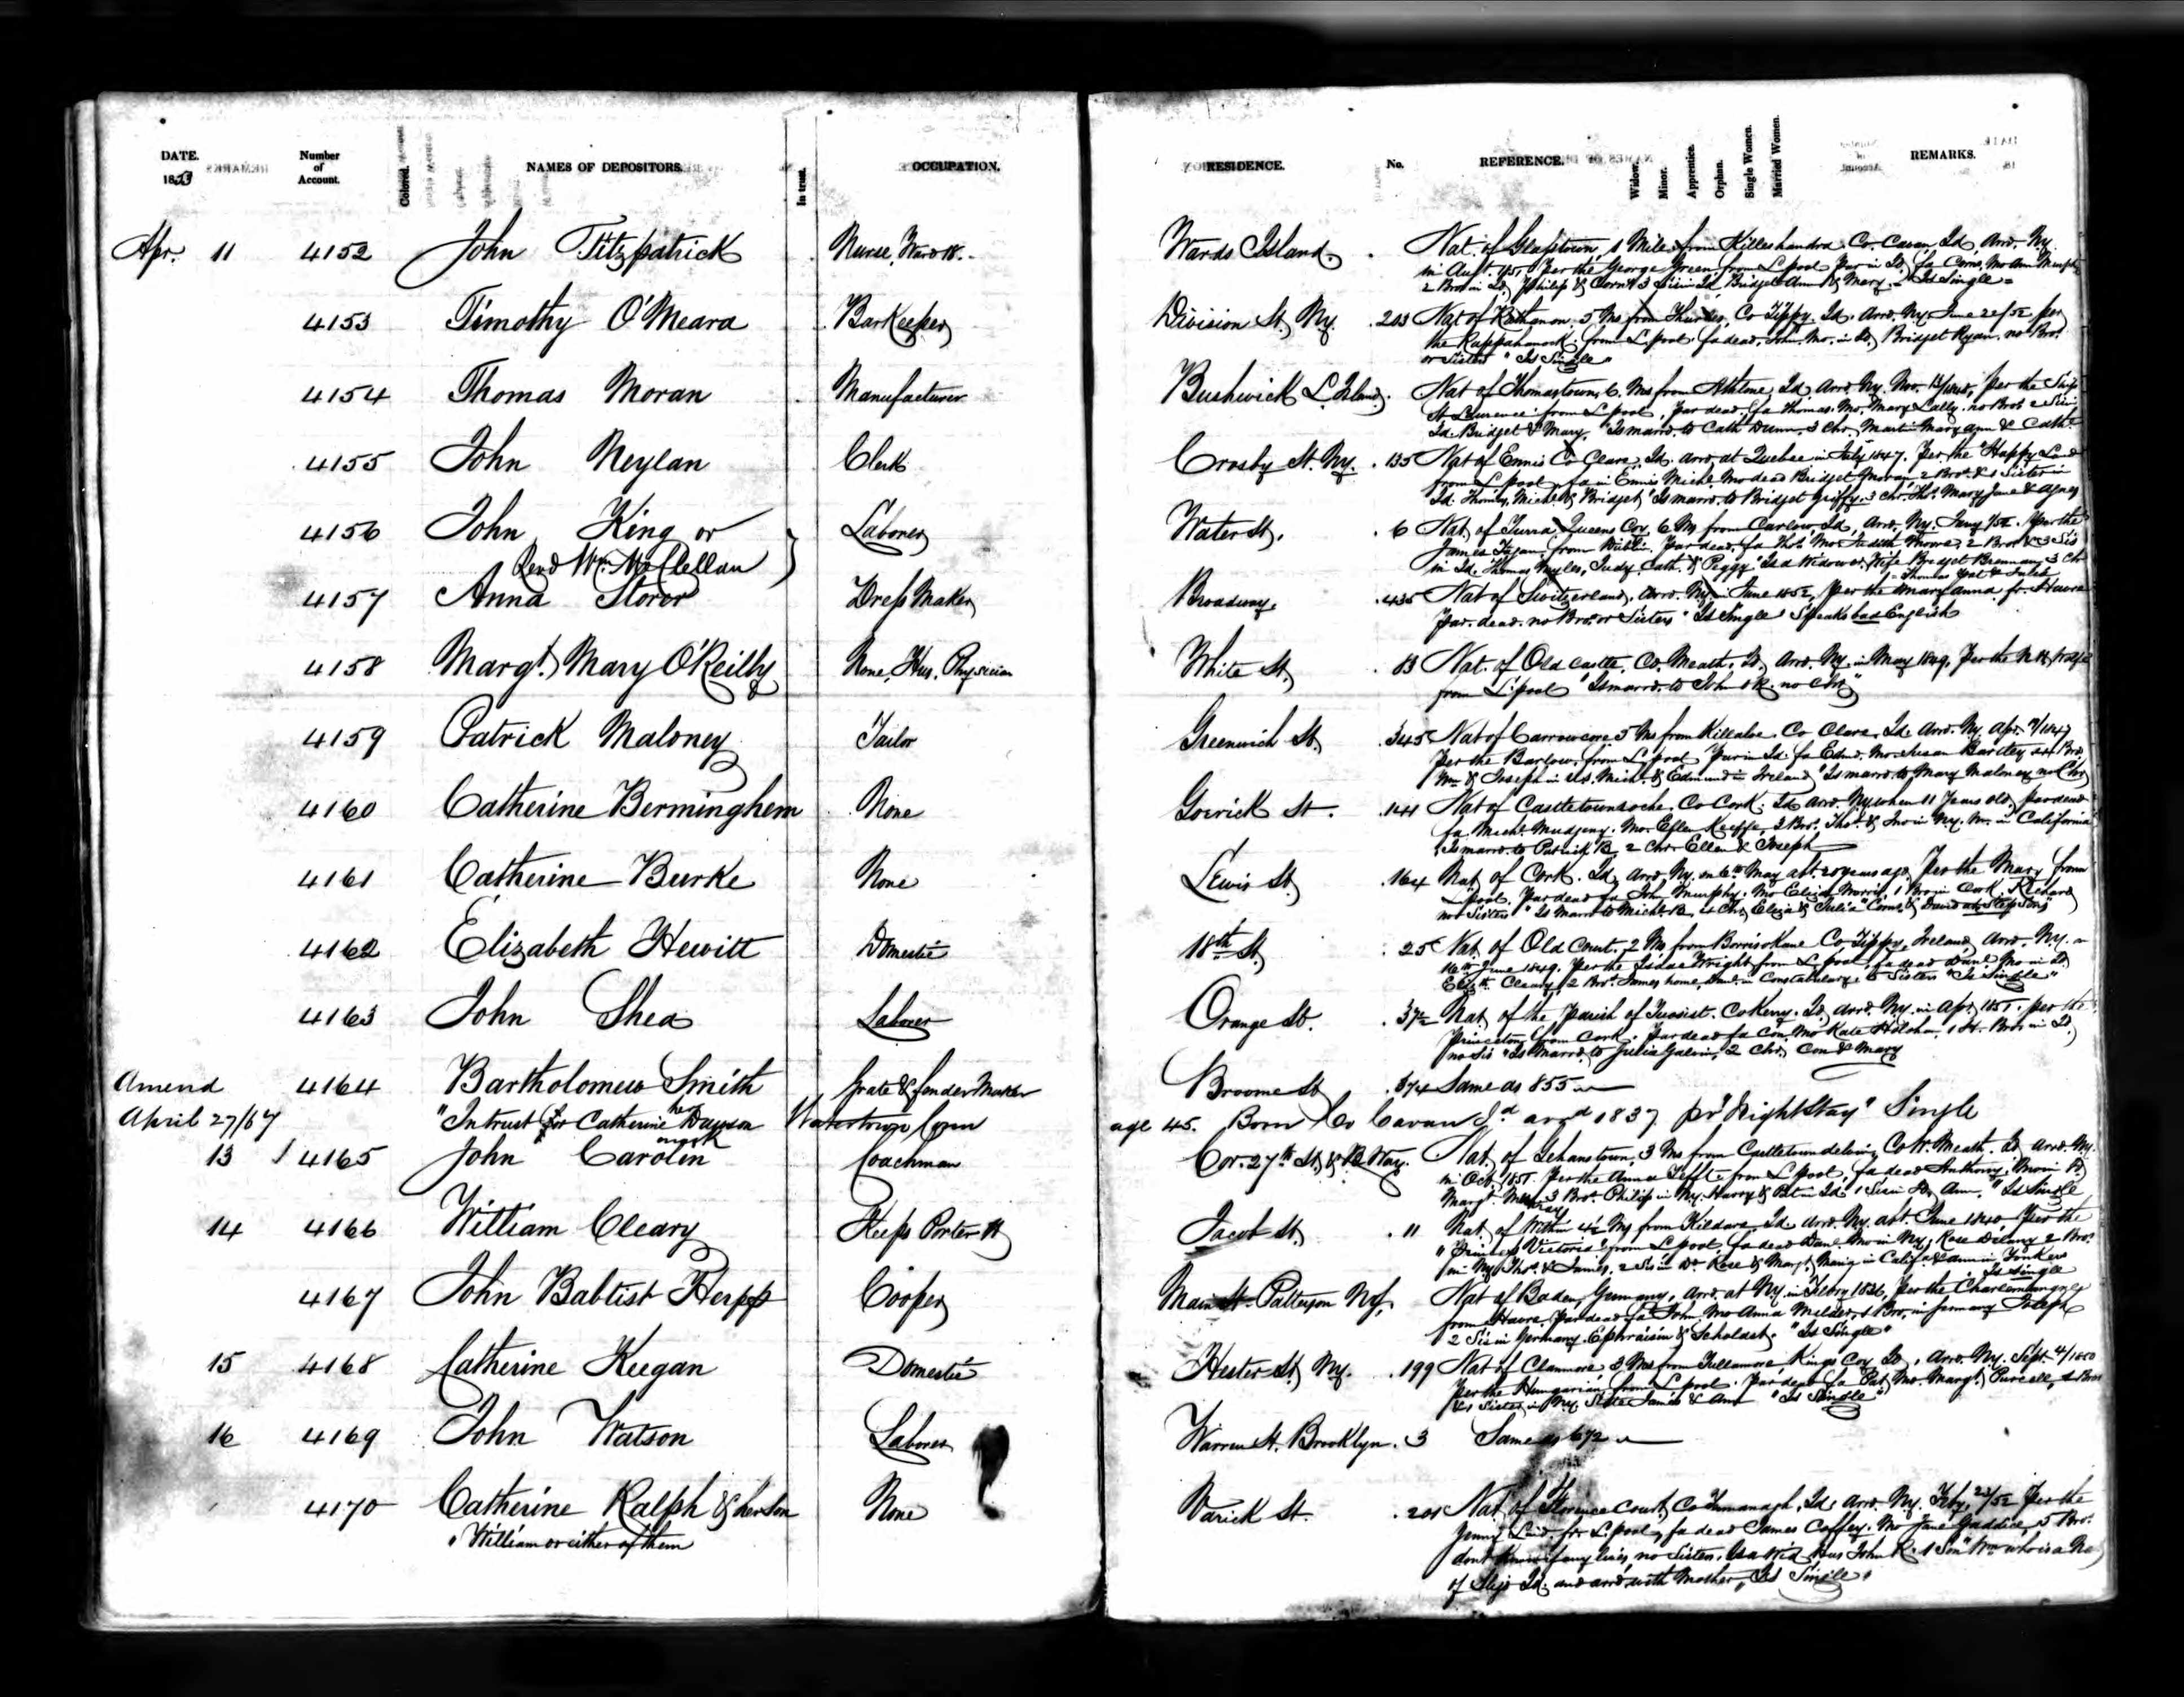 DATE. 1853
Number of Account.
Colored.
NAMES OF DEPOSITORS.
In trust.
OCCUPATION.
RESIDENCE.
No.
REFERENCE.
Widow.
Minor.
Apprentice.
Orphan.
Single Women.
Married Women.
REMARKS.
Apr. 11 4152 John Fitzpatrick Nurse, Ward 18. Wards Island. Nat. of Glasstown, 1 Mile from Killeshandra Co. Cavan Id. Arrd. Ny.
in Augt. 1851 Per the George Green from L.pool Par in Id. fa Corns. Mo Ann Murphy
2 Bro in Id. Philip & Corns. 3 Sis in Id. Bridget Ann & Mary. Is Single
4153 Timothy O'Meara BarKeeper Division St, Ny. 203 Nat of 5 Ms from Thurles, Co Tippy. Id. Arrd. Ny. June 22/52 per
the Rappahanock from L.pool fa dead, John. Mo. in Id. Bridget Ryan. no Bro.
or Sisters "Is Single"
4154 Thomas Moran Manufacturer Bushwick L. Island. Nat of Thomastown 6 Ms from Athlone, Id. Arrd. Ny. Nov. per the Ship
St Lawrence from L.pool, Par dead, fa Thomas. Mo. Mary Lally. no Bro. 2 Sis in
Id. Bridget & Mary. "Is marrd. to Cath Dunn. 3 Chr. Martin Mary Ann & Cathe.
4155 John Neylan Clerk Crosby St. Ny. 135 Nat of Ennis Co Clare, Id. Arrd at Quebec in July 1847. Per the "Happy Land
from L.pool, fa in Ennis Michl. Mo dead Bridget 2 Bro. & 1 Sister in
Id. Thomas, Michl. & Bridget "Is marrd. to Bridget Griffy. 3 Chr. Thos. Mary Jane & Agnes
4156 John King or Laborer Water St. 6 Nat of Queens Coy. 6 Ms from Carlow, Id, Arrd. Ny. Jany 1/52. Per the
Revd Wm. McClellan
James Fagan from Dublin. Par dead, fa Thos. Mo Judith Moore, 2 Bro & 3 Sis
in Id. Thomas Myles, Judy Cath. & Peggy "Is a Widower. Wife Bridget Brennan, 3 Chr
4157 Anna Storor Dress Maker Broadway. 435 Nat of Switzerland, Arrd. Ny. in June 1852, Per the Mary Anna fr. Havre
Par. dead. no Bro. or Sisters "Is Single" Speaks bad English
4158 Margt. Mary O'Reilly None, Hus. Physician White St, 83 Nat. of Old Castle, Co. Meath. Id, Arrd. Ny. in May 1849. Per the
from L.pool "Is marrd. to John O'R. no Chr"
4159 Patrick Maloney Tailor Greenwich St, 345 Nat of Carrowcore 5 Ms from Killaloe Co Clare Id. Arrd. Ny. Apr. 1847
Per the Barlow, from L.pool Par in Id. fa Edmd. Mo. Susan 4 Bro
Wm & Joseph in U.S. Michl. & Edmund in Ireland "Is marrd. to Mary Maloney no Chr
4160 Catherine Bermingham None Goerick St. 141 Nat of Castletownroche, Co Cork. Id. Arrd. Ny. when 11 Years old, par dead
fa Michl. Mo. Ellen Keeffe, 3 Bro. Thos. & Jno in Ny. in California
Is marrd. to Patrick B. 2 Chr. Ellen & Joseph
4161 Catherine Burke None Lewis St. 164 Nat of Cork. Id, Arrd, Ny. on 6th May abt. 20 years ago, Per the Mary from
L.pool. Par dead fa John Murphy. Mo Eliza Morris, 1 Bro in Cork. Richard
no Sisters "Is Marrd to Michl. B. 4 Chr. Eliza & Julia "Corns. & David are Step Sons"
4162 Elizabeth Hewitt Domestic 18th St, 25 Nat of Old Court, 2 Ms from Borrisokane Co Tippy, Ireland, Arrd. Ny. on
16th June 1849. Per the Isaac Wright from L.pool, fa dead Danl. Mo in Id.
Elizth. Cleary, 2 Bro. James home, Danl. in Constabulary. 6 Sisters "Is Single"
4163 John Shea Laborer Orange St. 37½ Nat of the Parish of Tuosist. Co Kerry. Id. Arrd. Ny. in Apr. 1851. per the
Princeton from Cork. Par dead fa Con. Mo Kate Holohan, 1 H. Bro in Id.
no Sis "Is Marrd. to Julia Galvin, 2 Chr. Con & Mary
Amend 4164 Bartholomew Smith Grate & fender Maker Broome St 374 Same as 855
April 27/67 "In trust for Catherine Dawson Watertown Conn age 45. Born Co Cavan Id arrd 1837 pr "Nightstay" Single
her mark
13 4165 John Carolin Coachman Cor. 27th St, & Nat. of 3 Ms from Castletowndelvin, Co W. Meath. Id. Arrd. Ny.
in Oct. 1851. Per the Anna from L.pool, fa dead Anthony. Mo in Id.
Margt. Murray 3 Bro. Philip in Ny. Harry & Pat in Id. 1 Sis in Id, Ann. "Is Single
14 4166 William Cleary Keeps Porter H Jacob St. 11 Nat. of 4½ Ms from Kildare, Id. Arrd. Ny. abt. June 1840. Per the
"Princess Victoria" from L.pool, fa dead Danl. Mo in Ny, Rose 2 Bro.
in Ny. Thos. & James, 2 Sis in Do. Rose & Margt. in Calif. & Ann in Yonkers
Is single
4167 John Babtist Herpp Cooper Main St. Patterson NJ. Nat of Baden, Germany, Arrd. at Ny. in Febry 1836, Per the Charlemagne
from Havre, Par dead fa John. Mo Anna 1 Bro. in Germany Joseph
2 Sis in Germany. "Is Single"
15 4168 Catherine Keegan Domestic Hester St, Ny. 199 Nat of 3 Ms from Tullamore Kings Coy Id, Arrd. Ny. Sept. 4/1850
Per the Hungarian from L.pool. Par dead fa Pat. Mo. Margt. Purcell, 1 Bro
& 1 Sister in Ny. James & Ann "Is Single"
16 4169 John Watson Laborer Warren St. Brooklyn. 3 Same as 672
4170 Catherine Ralph & her Son None Varick St. 201 Nat. of Florence Court, Co Fermanagh, Id, Arrd. Ny. Feby. 22/52 Per the
"William or either of them
Jenny Lind fr L.pool, fa dead James Caffey. Mo Jane 5 Bro.
dont know if any live, no Sisters. Is a Wid Hus John R. 1 Son "Wm who is a Na
of Sligo Id. and arrd with Mother, "Is Single"